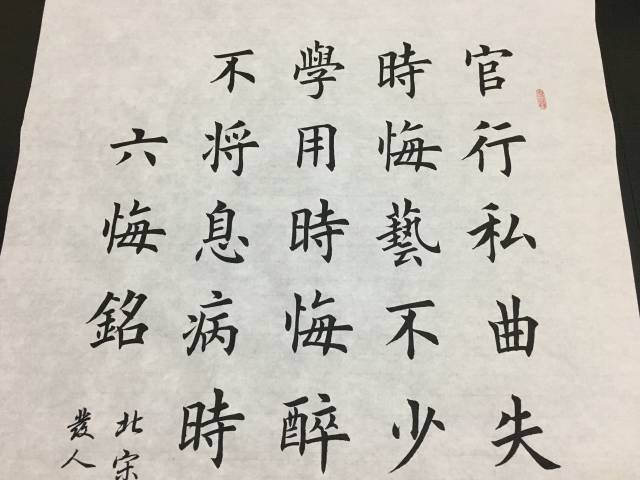 官行私曲失
時悔藝不少
學用時悔醉
不将息病時
六悔銘
北宋
發人